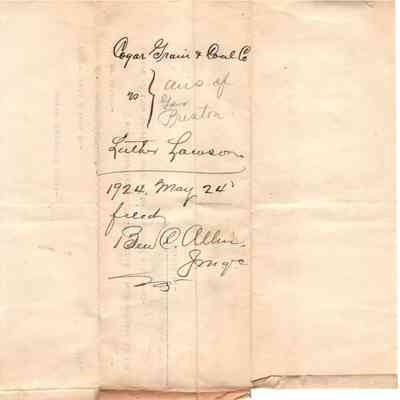 Cogar Grain & Coal Co
vs } ans of
Geo
Preston
Luther Lawson
1924, May 24
filed
Ben C. Allin